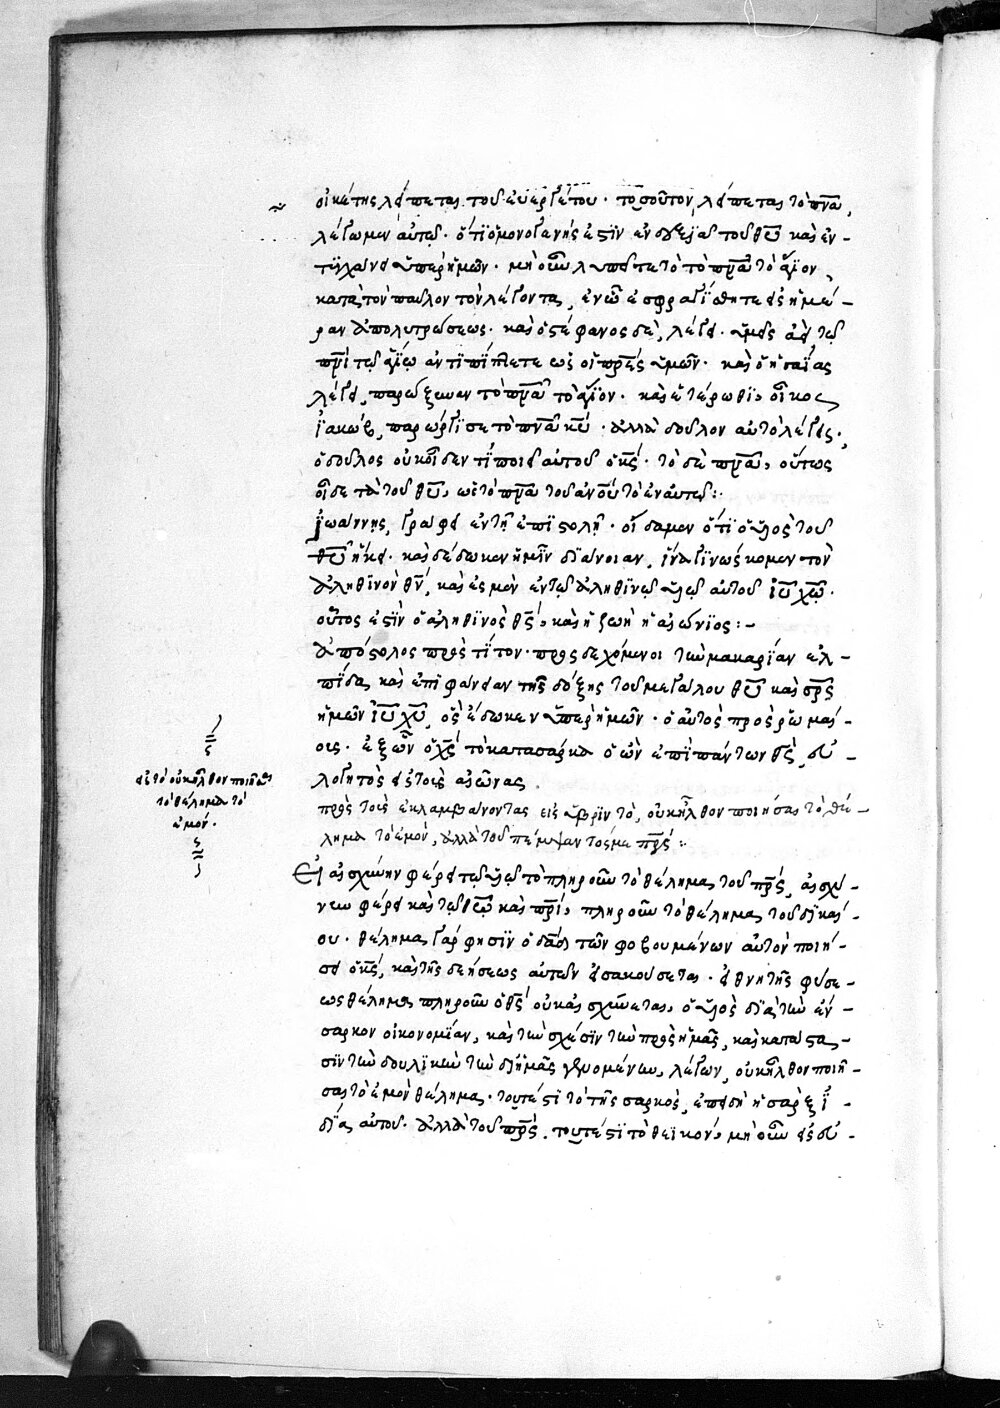 οἰκέτης λείπεται τοῦ εὐεργέτου· τοσοῦτον λείπεται τὸ πνα,
λέγωμεν αὐτῷ· ὅτι ὁ μονογενής ἐστιν ἐν δεξιᾷ τοῦ θυ καὶ ἐν-
τυγχάνει ὑπὲρ ἡμῶν· μὴ οὖν λυπεῖτε τὸ πνα τὸ ἅγιον
κατὰ τὸν παῦλον τὸν λέγοντα, ἐν ᾧ ἐσφραγίσθητε εἰς ἡμέ-
ραν ἀπολυτρώσεως· καὶ ὁ στέφανος δὲ, λέγει· ὑμεῖς ἀεὶ τῷ
πνι τῷ ἁγίῳ ἀντιπίπτετε ὡς οἱ πρες ὑμῶν· καὶ ὁ ἡσαΐας
λέγει, παρώξυναν τὸ πνα τὸ ἅγιον· καὶ ἑτέρωθι, οἶκος
ἰακὼβ, παρώργισε τὸ πνα κυ· ἀλλὰ δοῦλον αὐτὸ λέγεις·
ὁ δοῦλος οὐκ οἶδεν τί ποιεῖ αὐτοῦ ὁ κς· τὸ δὲ πνα, οὕτως
οἶδε τὰ τοῦ θυ, ὡς τὸ πνα τοῦ ἀνου τὸ ἐν αὐτῷ:
ἰωάννης, γράφει ἐν τῇ ἐπιστολῇ· οἴδαμεν ὅτι ὁ υἱὸς τοῦ
θυ ἥκει· καὶ δέδωκεν ἡμῖν διάνοιαν, ἵνα γινώσκομεν τὸν
ἀληθινὸν θν, καὶ ἐσμὲν ἐν τῷ ἀληθινῷ υἱῷ αὐτοῦ ιυ χω·
οὗτος ἐστὶν ὁ ἀληθινὸς θς, καὶ ἡ ζωὴ ἡ αἰώνιος:-
ἀπόστολος πρὸς τίτον· προσδεχόμενοι τὴν μακαρίαν ἐλ-
πίδα, καὶ ἐπιφάνειαν τῆς δόξης τοῦ μεγάλου θυ καὶ σρς
ἡμῶν ιυ χυ, ὃς ἔδωκεν ὑπὲρ ἡμῶν· ὁ αὐτὸς πρὸς ρωμαί-
οις· ἐξ ὧν ὁ χς τὸ κατὰ σάρκα ὁ ὢν ἐπὶ πάντων θς, εὐ-
λογητὸς εἰς τοὺς αἰῶνας.
πρὸς τοὺς ἐκλαμβάνοντας εἰς ὕβριν τὸ, οὐκ ἦλθον ποιῆσαι τὸ θέ-
λημα τὸ ἐμὸν, ἀλλὰ τοῦ πέμψαντός με πρς:
Εἰ αἰσχύνην φέρει τῷ υἱῷ τὸ πληροῦν τὸ θέλημα τοῦ πρς, αἰσχύ-
νην φέρει καὶ τῷ θω καὶ πρι, πληροῦν τὸ θέλημα τοῦ δικαί-
ου· θέλημα γάρ φησιν ὁ δαδ τῶν φοβουμένων αὐτὸν ποιή-
σει ὁ κς, καὶ τῆς δεήσεως αὐτῶν εἰσακούσεται· εἰ θνητῆς φύσε-
ως θέλημα πληροῦν ὁ θς οὐκ αἰσχύνεται, ὁ υἱὸς διὰ τὴν ἔν-
σαρκον οἰκονομίαν, καὶ τὴν σχέσιν τὴν πρὸς ἡμᾶς, καὶ κατάστα-
σιν τὴν δουλικὴν τὴν δι' ἡμᾶς γενομένην, λέγων, οὐκ ἦλθον ποιῆ-
σαι τὸ ἐμὸν θέλημα· τουτέστι τὸ τῆς σαρκὸς, ἐπειδὴ ἡ σὰρξ ἰ-
δία αὐτοῦ· ἀλλὰ τοῦ πρς, τουτέστι τὸ θεϊκόν, μὴ οὖν εἰς εὐ-
εἰς τὸ οὐκ ἦλθον ποιῆσαι
τὸ θέλημα τὸ
ἐμόν·